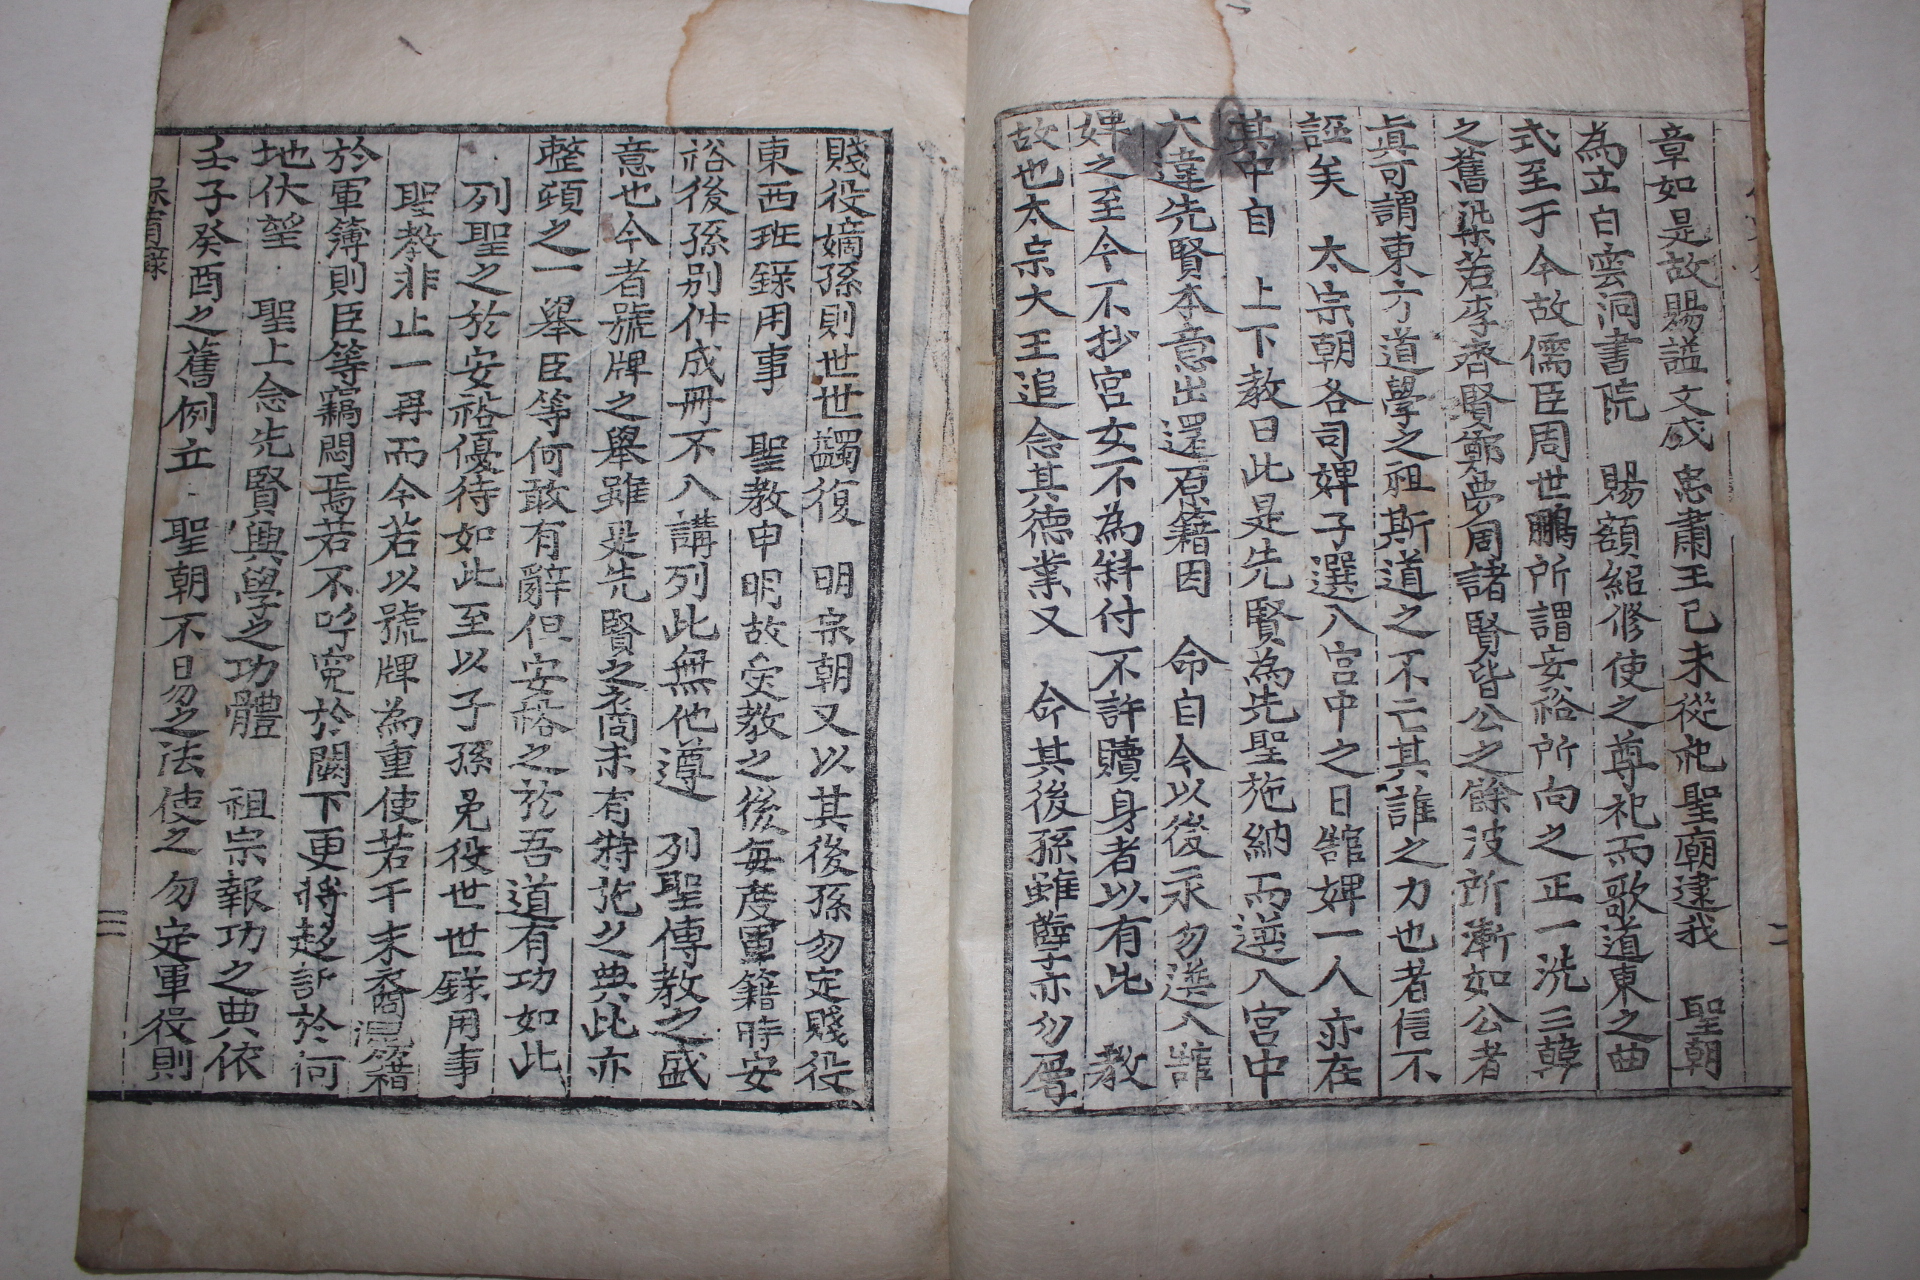 章如是故賜謚文成忠肅王己未從祀聖廟逮我 聖朝
為立白雲洞書院 賜額紹修使之尊祀而歌道東之曲
式至于今故儒臣周世鵬所謂安裕所向之正一洗三韓
之舊染若李齊賢鄭夢周諸賢皆公之餘波所漸如公者
眞可謂東方道學之祖斯道之不亡其誰之力也者信不
誣矣 太宗朝各司婢子選入宮中之日館婢一人亦在
其中自 上下教曰此是先賢為先聖施納而選入宮中
大違先賢本意出還原籍因 命自今以後永勿選入館
婢之至今不抄宮女不為斜付不許贖身者以有此 教
故也太宗大王追念其德業又 命其後孫雖孽亦勿
賤役嫡孫則世世蠲復 明宗朝又以其後孫勿定賤役
東西班錄用事 聖教申明故受教之後每度軍籍時安
裕後孫別件成冊不入講列此無他遵 列聖傳教之盛
意也今者號牌之舉雖是先賢之裔未有特施之典此亦
整頓之一舉臣等何敢有辭但安裕之於吾道有功如此
列聖之於安裕優待如此至以子孫免役世世錄用事
聖教非止一再而今若以號牌為重使若干末裔混籍
於軍簿則臣等竊悶焉若不吁寃於闕下更將起訴於何
地伏望 聖上念先賢興學之功體 祖宗報功之典依
壬子癸酉之舊例立 聖朝不易之法使之勿定軍役則
二
三